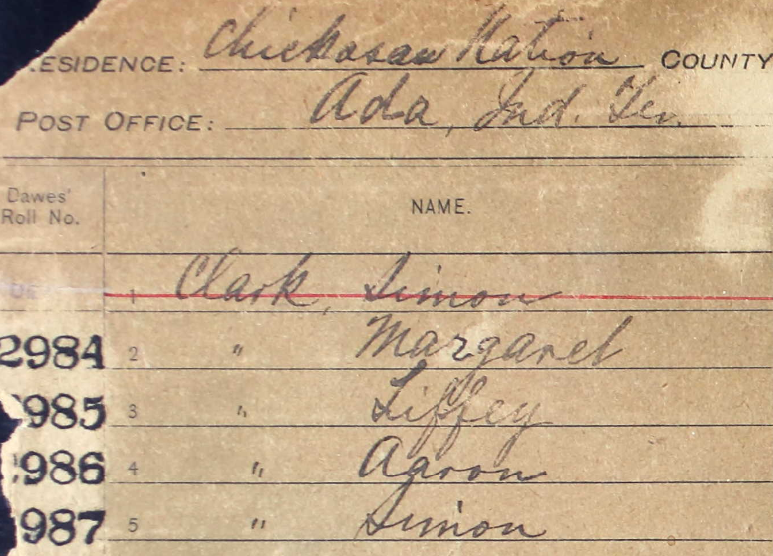 RESIDENCE: Chickasaw Nation COUNTY
POST OFFICE: Ada, Ind. Ter.
Dawes' Roll No. NAME.
1 Clark, Simon
2984 2 " Margaret
985 3 " Liffey
986 4 " Aaron
987 5 " Simon